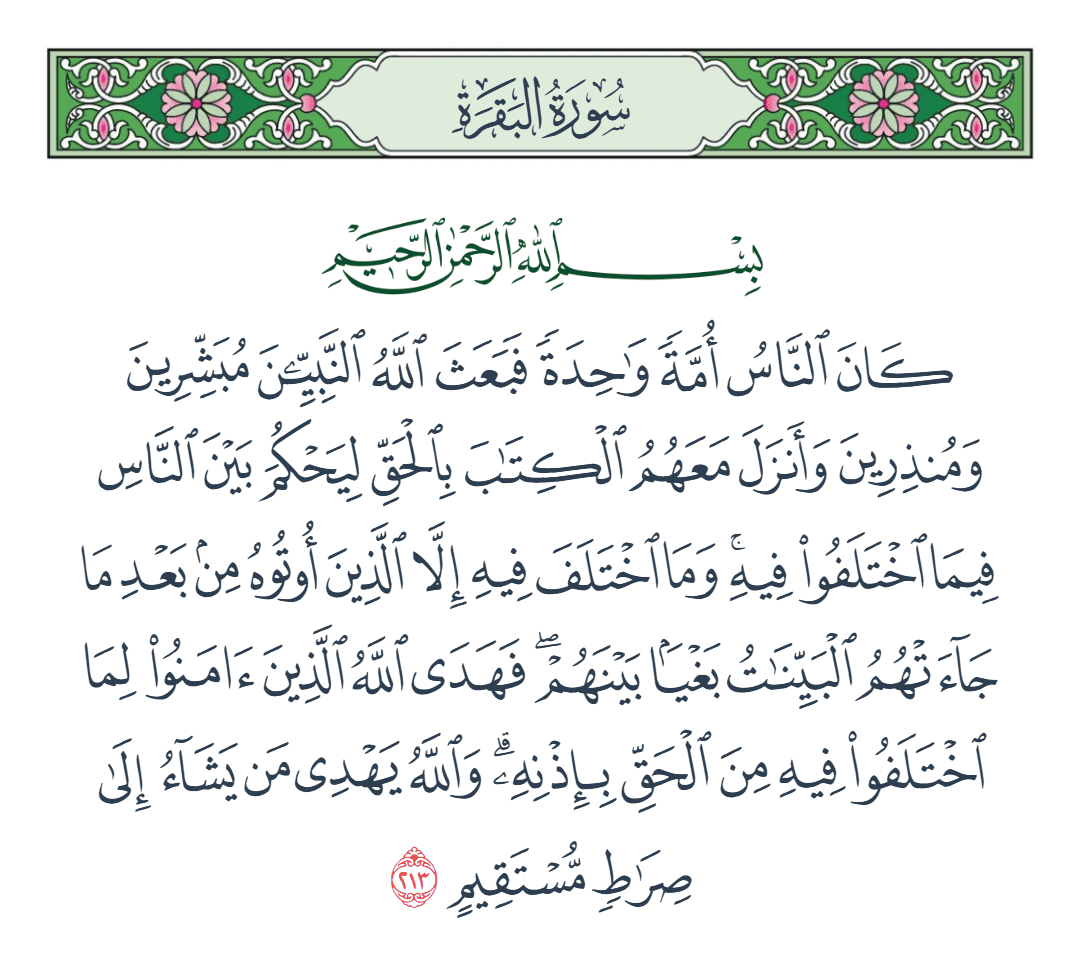 سُورَةُ البَقَرَةِ
بِسْمِ ٱللَّهِ ٱلرَّحْمَٰنِ ٱلرَّحِيمِ
كَانَ ٱلنَّاسُ أُمَّةٗ وَٰحِدَةٗ فَبَعَثَ ٱللَّهُ ٱلنَّبِيِّـۧنَ مُبَشِّرِينَ
وَمُنذِرِينَ وَأَنزَلَ مَعَهُمُ ٱلۡكِتَٰبَ بِٱلۡحَقِّ لِيَحۡكُمَ بَيۡنَ ٱلنَّاسِ
فِيمَا ٱخۡتَلَفُواْ فِيهِۚ وَمَا ٱخۡتَلَفَ فِيهِ إِلَّا ٱلَّذِينَ أُوتُوهُ مِنۢ بَعۡدِ مَا
جَآءَتۡهُمُ ٱلۡبَيِّنَٰتُ بَغۡيَۢا بَيۡنَهُمۡۖ فَهَدَى ٱللَّهُ ٱلَّذِينَ ءَامَنُواْ لِمَا
ٱخۡتَلَفُواْ فِيهِ مِنَ ٱلۡحَقِّ بِإِذۡنِهِۦۗ وَٱللَّهُ يَهۡدِي مَن يَشَآءُ إِلَىٰ
صِرَٰطٖ مُّسۡتَقِيمٍ ٢١٣